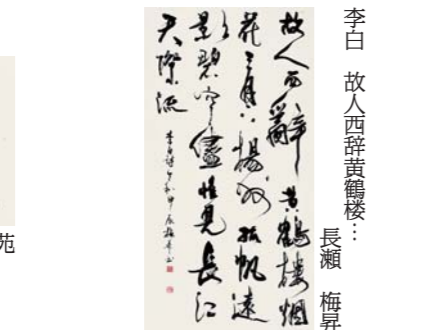 李白　故人西辞黄鶴楼…
長瀬　梅昇
故人西辭黄鶴楼烟
花三月下揚州孤帆遠
影碧空盡惟見長江
天際流
苑